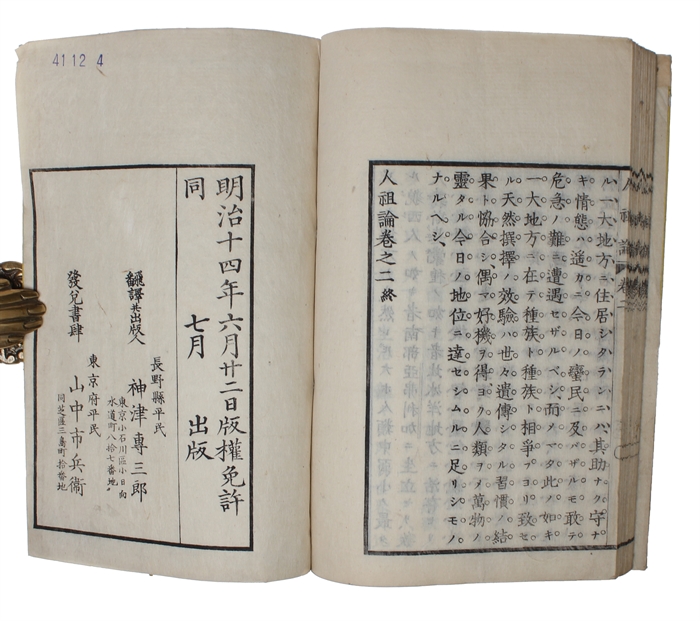 ル、一大地方ニ住居シタランニハ、其助ナク守ナ
キ情態ハ遥カニ今日ノ蠻民ニ及バザルモ敢テ
危急ノ難ニ遭遇セザルベシ、而メマタ此ノ如キ
一大地方ニ在テ種族ト種族ト相爭フヨリ致セ
ル天然撰擇ノ效驗ハ世々遺傳シタル習慣ノ結
果ト恊合シ、偶マ好機ヲ得ヨク人類ヲメ萬物ノ
靈タル今日ノ地位ニ達セシムルニ足リシモノ
ナルヘシ、
人祖論卷之二終
人祖論 卷二
41 12 4
明治十四年六月廿二日版權免許
同 七月 出版
飜譯共出版人
長野縣平民
神津專三郎
東京小石川區小日向
水道町八拾七番地
發兌書肆
東京府平民
山中市兵衞
同芝區三島町拾番地